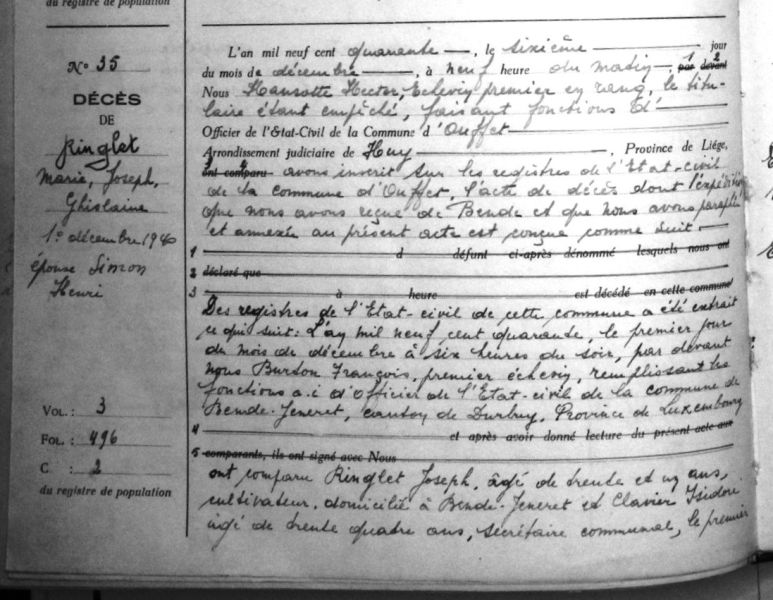 du registre de population
N° 35
DÉCÈS
DE
Ringlet
Marie, Joseph,
Ghislaine
1er décembre 1940
épouse Simon
Henri
VOL. : 3
FOL. : 496
C. : 2
du registre de population
L'an mil neuf cent quarante, le sixième jour
du mois de décembre, à neuf heure du matin, 1 par 2 devant
Nous Hansotte Hector Echevin premier en rang, le titu-
laire étant empêché, faisant fonctions d'
Officier de l'Etat-Civil de la Commune d'Ouffet
Arrondissement judiciaire de Huy, Province de Liége,
ont comparu avons inscrit sur les registres de l'Etat-civil
de la commune d'Ouffet, l'acte de décès dont l'expédition
que nous avons reçue de Bende et que nous avons paraphé
et annexée au présent acte est conçue comme suit.
1 d défunt ci-après dénommé lesquels nous ont
2 déclaré que
3 à heure est décédé en cette commune
Des registres de l'Etat-civil de cette commune a été extrait
ce qui suit: L'an mil neuf cent quarante, le premier jour
du mois de décembre à six heures du soir, par devant
nous Burton François, premier échevin, remplissant les
fonctions a.i d'Officier de l'Etat-civil de la commune de
Bende-Jeneret, canton de Durbuy, Province de Luxembourg
4 et après avoir donné lecture du présent acte aux
5 comparants, ils ont signé avec Nous
ont comparu Ringlet Joseph, âgé de trente et un ans,
cultivateur, domicilié à Bende-Jeneret et Clavier Isidore
âgé de trente quatre ans, secrétaire communal, le premier